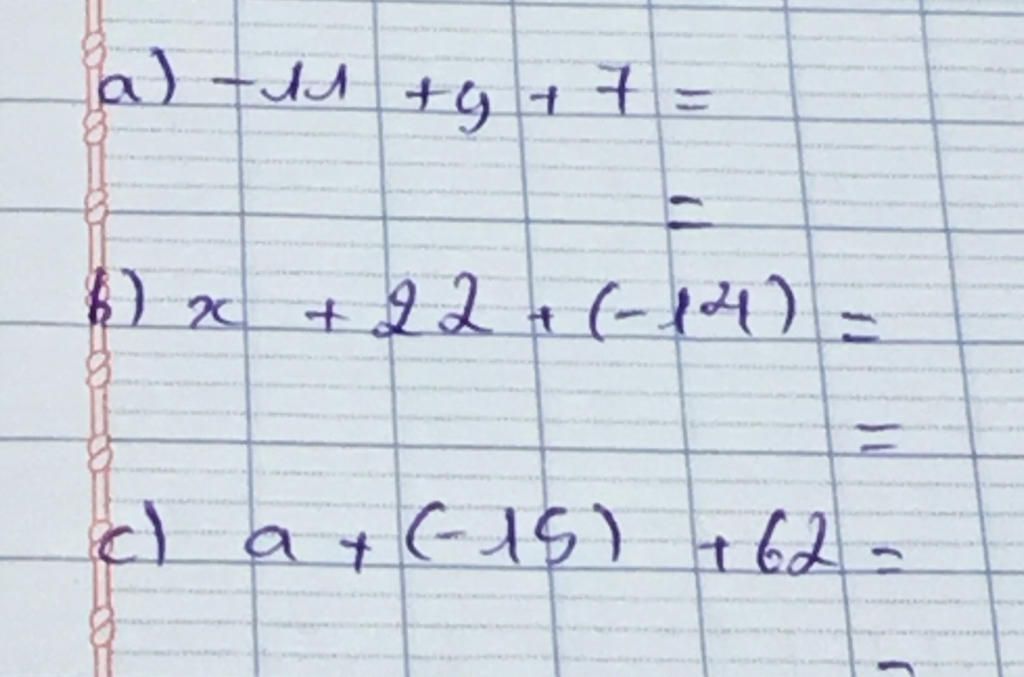 a) -11 + y + 7 =
=
b) x + 22 + (-14) =
=
c) a + (-15) + 62 =
=